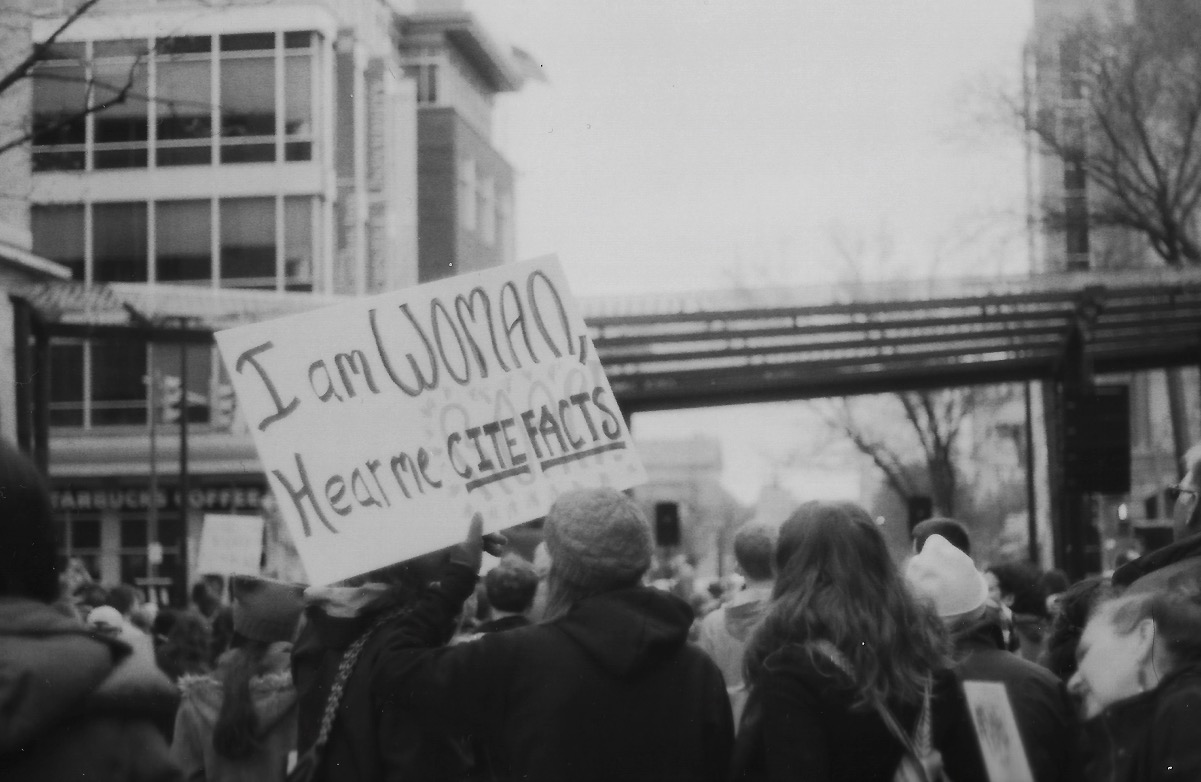 I am WOMAN,
Hear me CITE FACTS
STARBUCKS COFFEE